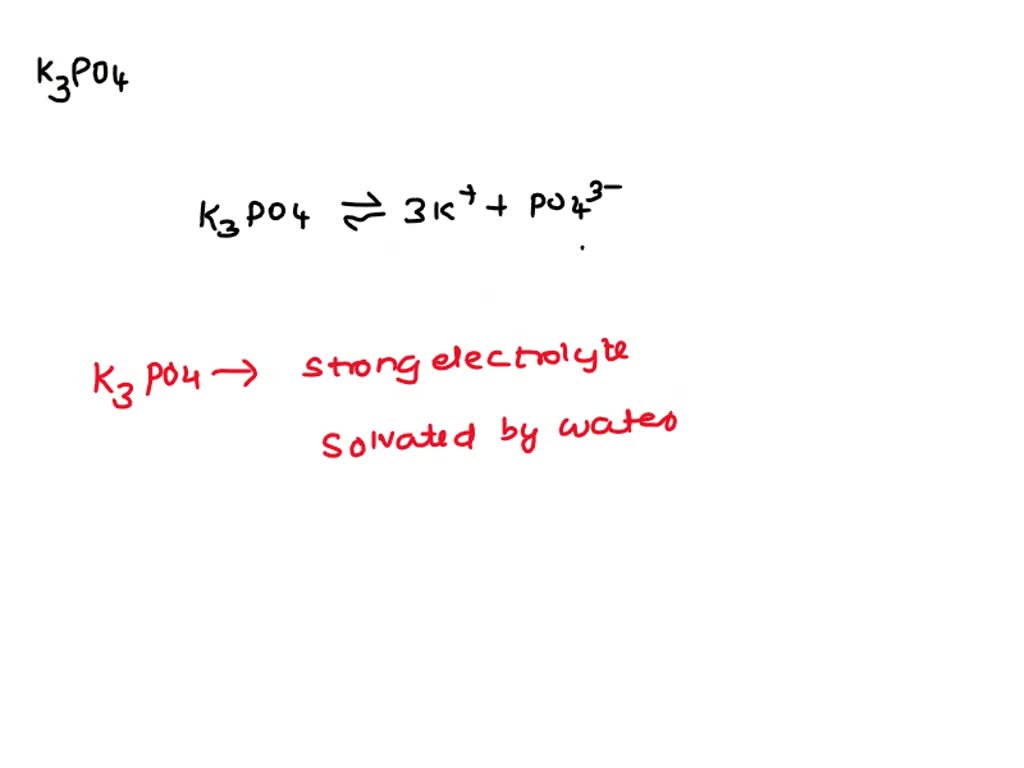 K₃PO₄
K₃PO₄ ⇌ 3K⁺ + PO₄³⁻
K₃PO₄ → strong electrolyte
Solvated by water